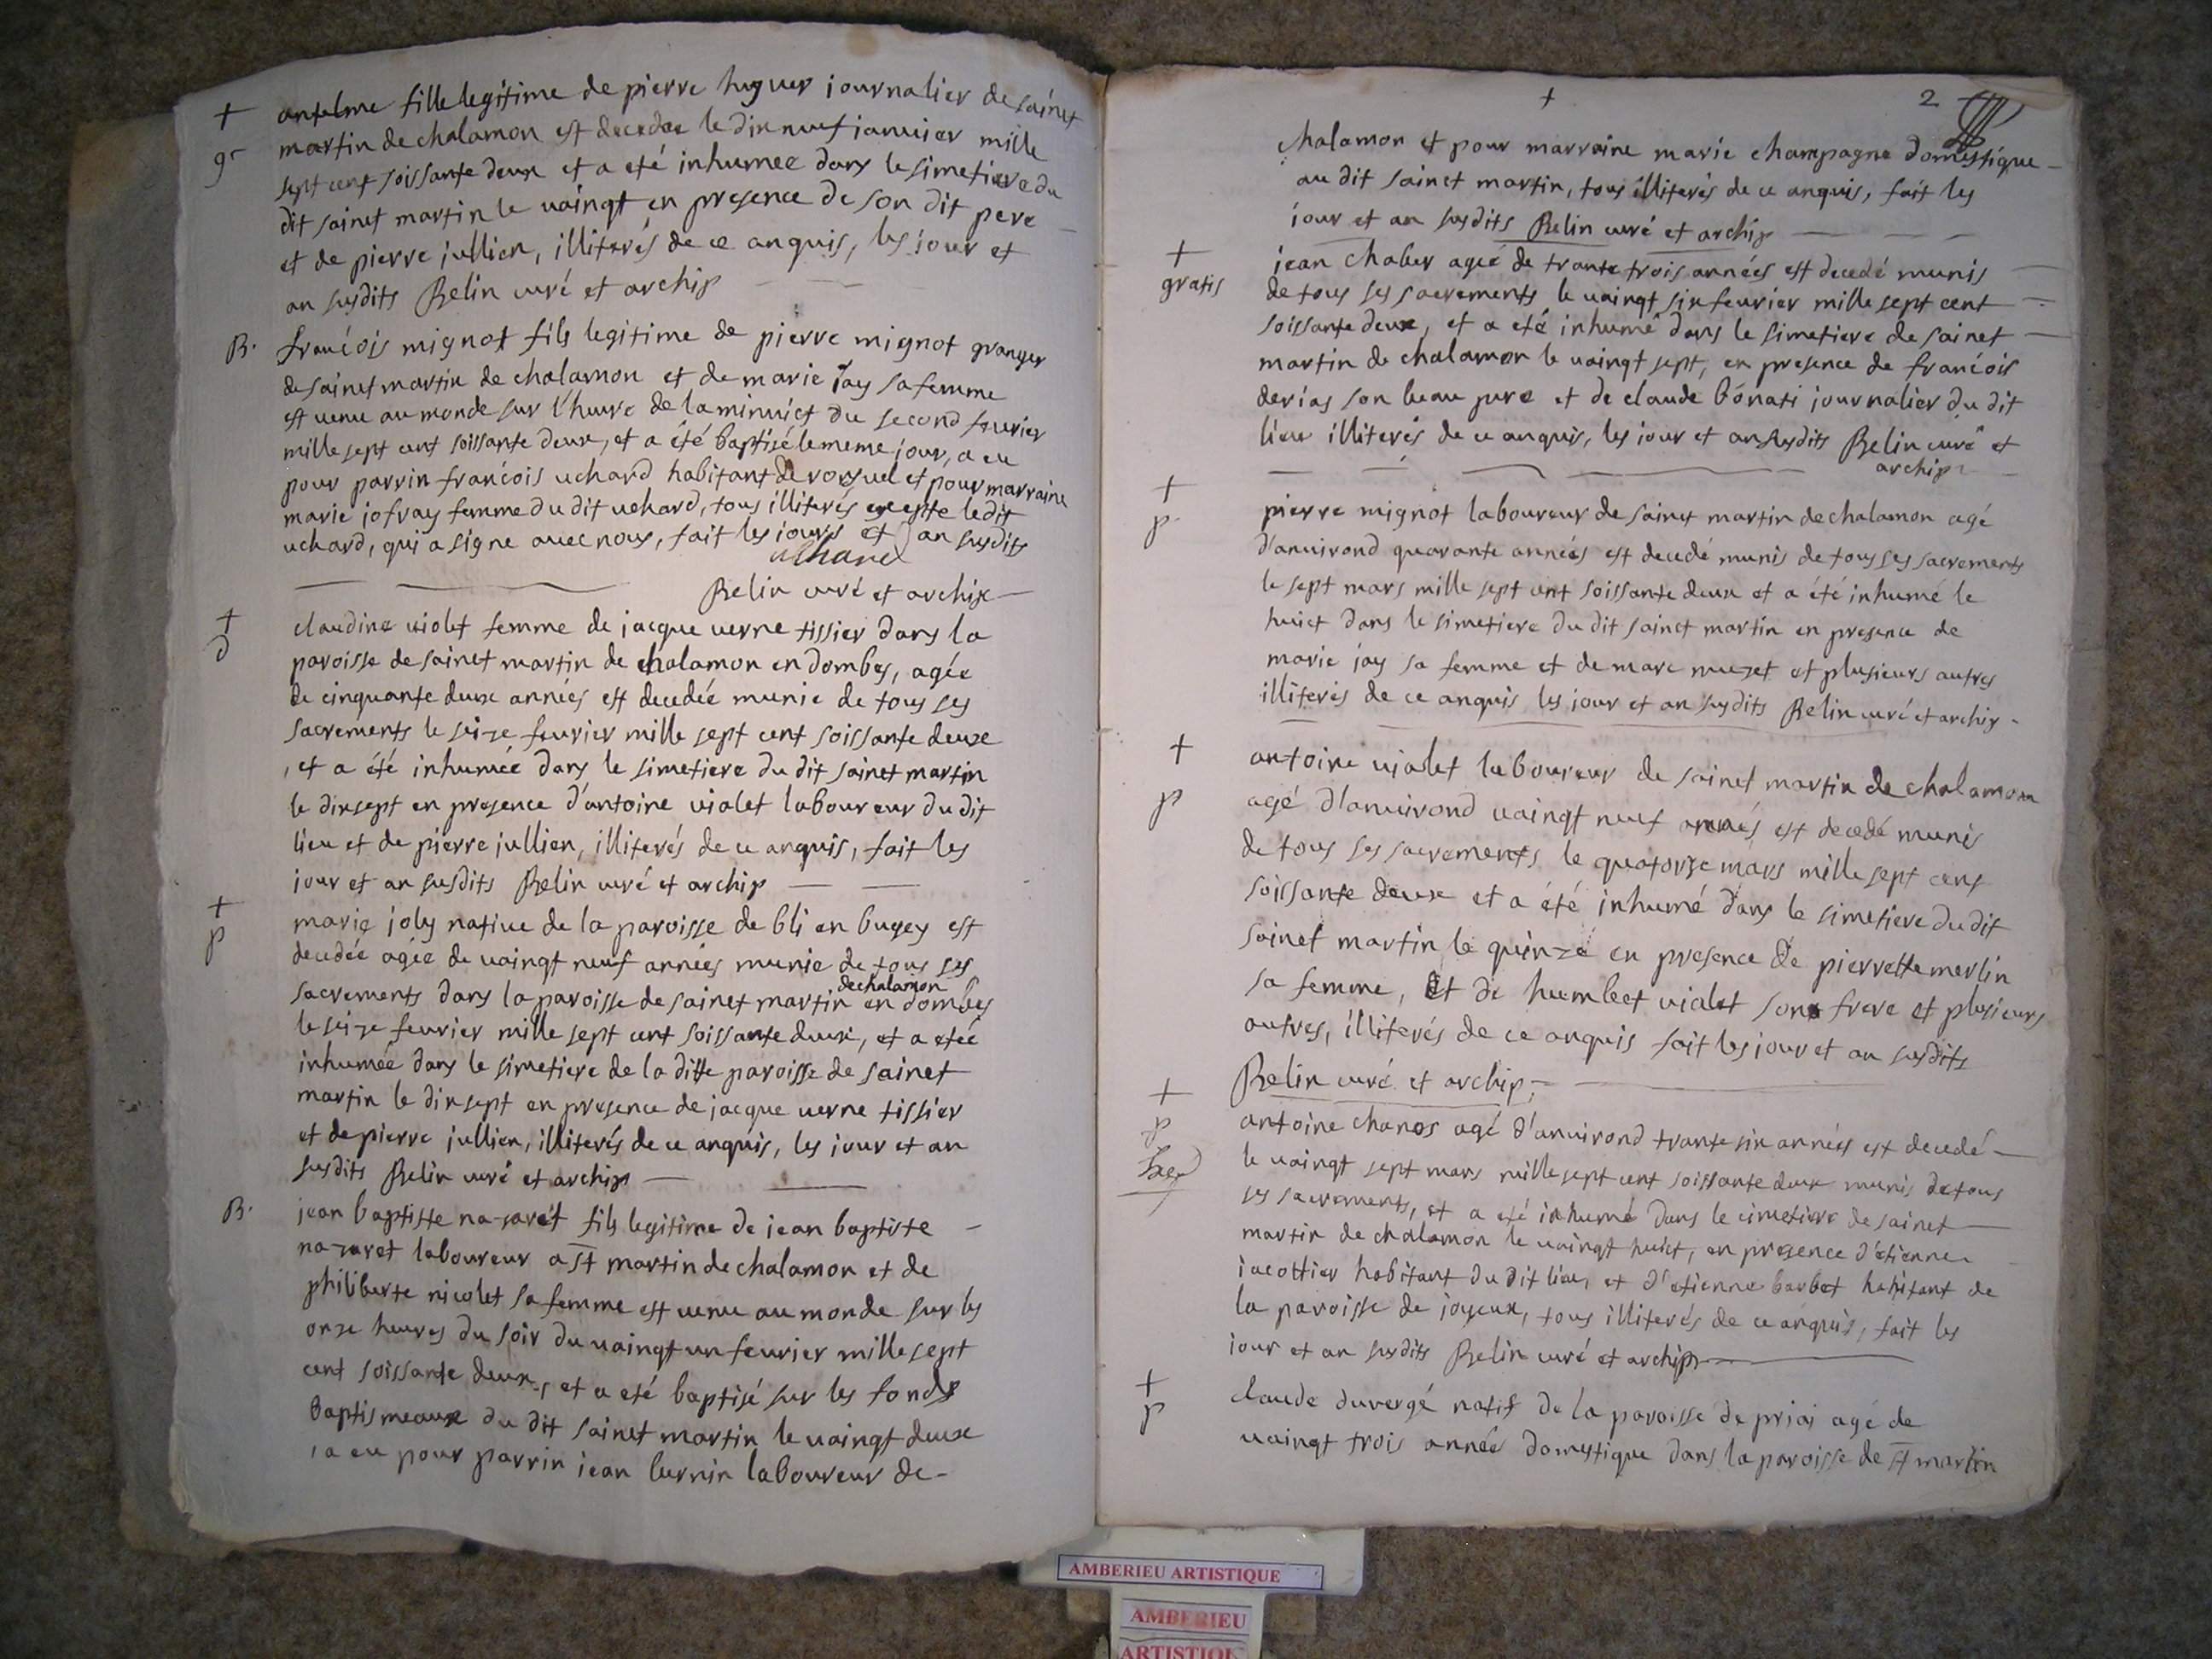 + antelme fille legitime de pierre huguer journalier de sainct
gr martin de chalamon est decedee le dix neuf janvier mille
sept cent soissante deux et a eté inhumee dans le simetiere du
dit sainct martin le vaingt en presence de son dit pere
et de pierre jullien, illiterés de ce anquis, les jour et
an susdits Belin curé et archip
B. francois mignot fils legitime de pierre mignot granger
de sainct martin de chalamon et de marie jay sa femme
est venu au monde sur l'heure de la minuict du second feurier
mille sept cent soissante deux, et a été baptisé le meme jour, a eu
pour parrin francois uchard habitant de et pour marraine
marie jofray femme du dit uchard, tous illiterés excepte le dit
uchard, qui a signe avec nous, fait les jours et an susdits
uchard
Belin curé et archip
+ claudine violet femme de jacque verne tissier dans la
d paroisse de sainct martin de chalamon en dombes, agée
de cinquante deux années est decedeé munie de tous ses
sacrements le seize feurier mille sept cent soissante deux
, et a été inhumée dans le simetiere du dit sainct martin
le dixsept en presence d'antoine violet laboureur du dit
lieu et de pierre jullien, illiterés de ce anquis, fait les
jour et an susdits Belin curé et archip
+ marie joly native de la paroisse de bli en bugey est
p decedée agée de vaingt neuf années munie de tous ses
dechalamon
sacrements dans la paroisse de sainct martin en dombes
le seize feurier mille sept cent soissante deux, et a etée
inhumée dans le simetiere de la ditte paroisse de sainct
martin le dixsept en presence de jacque verne tissier
et de pierre jullien, illiterés de ce anquis, les jour et an
susdits Belin curé et archip
B. jean baptiste nazarét fils legitime de jean baptiste
nazaret laboureur a st martin de chalamon et de
philiberte nicolet sa femme est venu au monde sur les
onze heures du soir du vaingt un feurier mille sept
cent soissante deux, et a eté baptisé sur les fonds
baptismeaux du dit sainct martin le vaingt deux
, a eu pour parrin jean burnin laboureur de-
+ 2
chalamon et pour marraine marie champagne domestique
au dit sainct martin, tous illiterés de ce anquis, fait les
jour et an susdits Belin curé et archip
+ jean chaber ageé de trante trois années est decedé munis
gratis de tous ses sacrements le vaingt six feurier mille sept cent
soissante deux, et a eté inhumé dans le simetiere de sainct
martin de chalamon le vaingt sept, en presence de francois
derias son beau pere et de claude bonati journalier du dit
lieu illiterés de ce anquis, les jour et an susdits Belin curé et
archip
+ pierre mignot laboureur de sainct martin de chalamon agé
p d'anvirond quarante années est decedé munis de tous ses sacrements
le sept mars mille sept cent soissante deux et a été inhumé le
huict dans le simetiere du dit sainct martin en presence de
marie jay sa femme et de marc muzet et plusieurs autres
illiterés de ce anquis les jour et an susdits Belin curé et archip
+ antoine violet laboureur de sainct martin de chalamon
p agé d'anvirond vaingt neuf annés est decedé munis
de tous ses sacrements le quatorze mars mille sept cent
soissante deux et a été inhumé dans le simetiere du dit
sainct martin le quinze en presence de pierrette merlin
sa femme, Et de humbert violet son frere et plusieurs
autres, illiterés de ce anquis fait les jour et an susdits
Belin curé et archip.
+ antoine chanos agé d'anvirond trante six années est decedé
p le vaingt sept mars mille sept cent soissante deux munis de tous
ses sacrements, et a eté inhumé dans le cimetiere de sainct
martin de chalamon le vaingt huict, en presence d'etienne
jacottier habitant du dit lieu, et d'etienne barbet habitant de
la paroisse de joyeux, tous illiterés de ce anquis, fait les
jour et an susdits Belin curé et archip
+ claude duvergé natif de la paroisse de priai agé de
p vaingt trois année domestique dans la paroisse de st martin
AMBERIEU ARTISTIQUE
AMBERIEU
ARTISTIQU